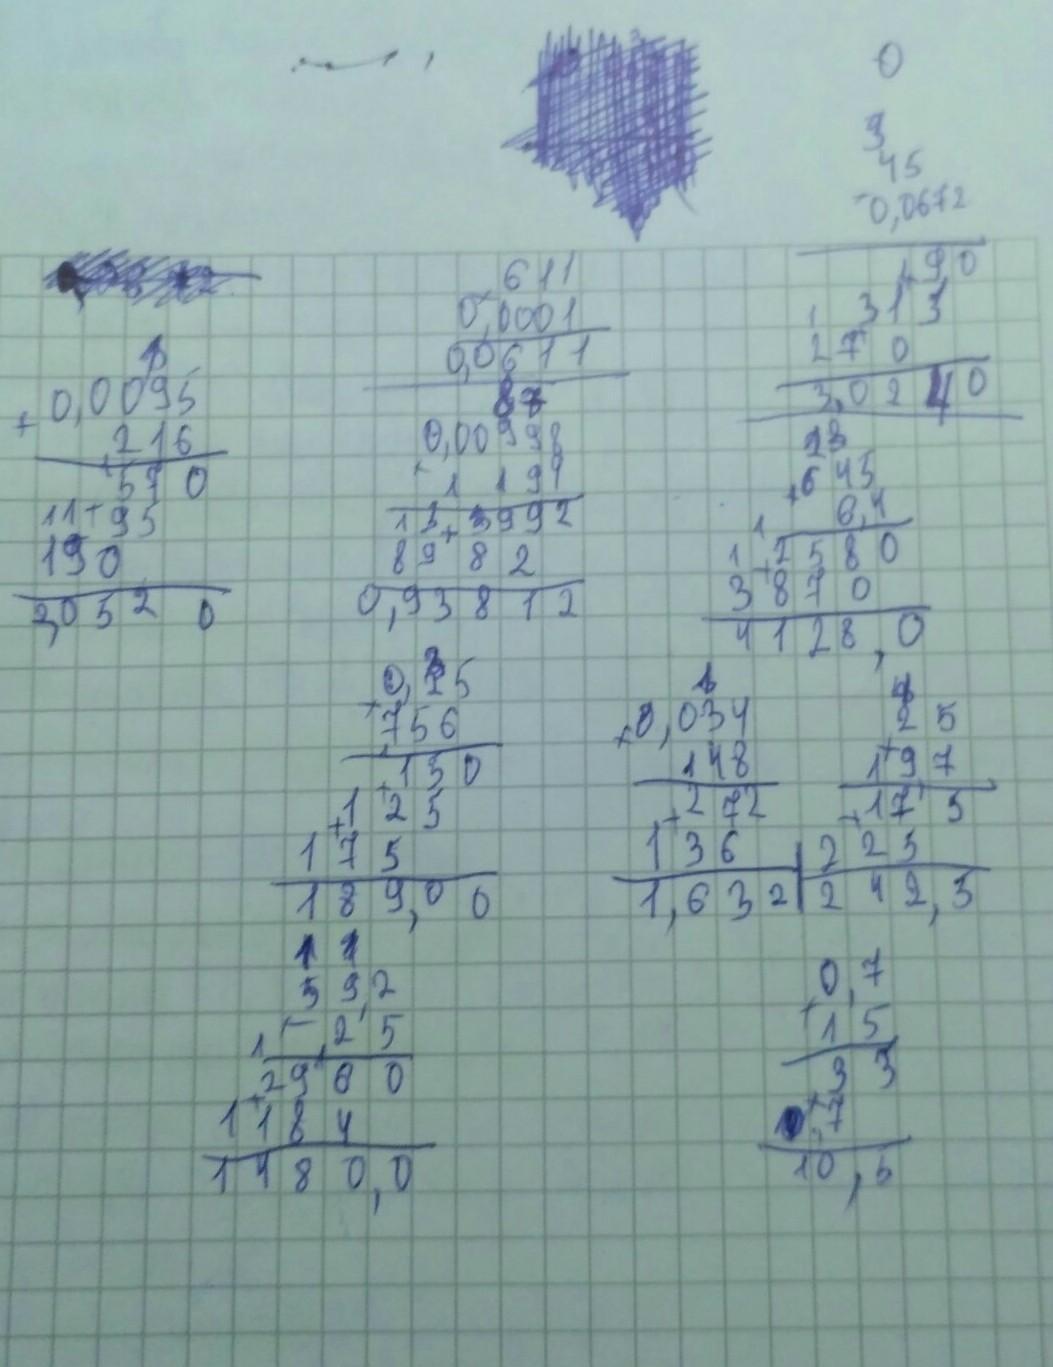 0
3
45
0,0672
190
1 313
270
3,0240
1
0,0095
+ 216
570
11+95
190
2,052 0
611
0,0001
0,0611
87
0,00998
1 199
13 3992
+
89 82
0,93812
23
×645
6,4
1
1 2580
+
3870
4128,0
0,25
756
150
+125
175
189,00
1
×0,034
148
+272
136
1,632
25
197
+175
225
242,5
1 1
592
,25
1
2960
+
1184
1480,0
0,7
15
35
+7
10,5